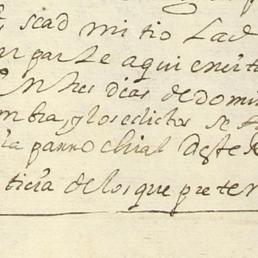 scad mi tio Lad
par te aqui en
tres dias de domin
mbra, y los edictos se
ia parrochial deste
ticia de los que preten